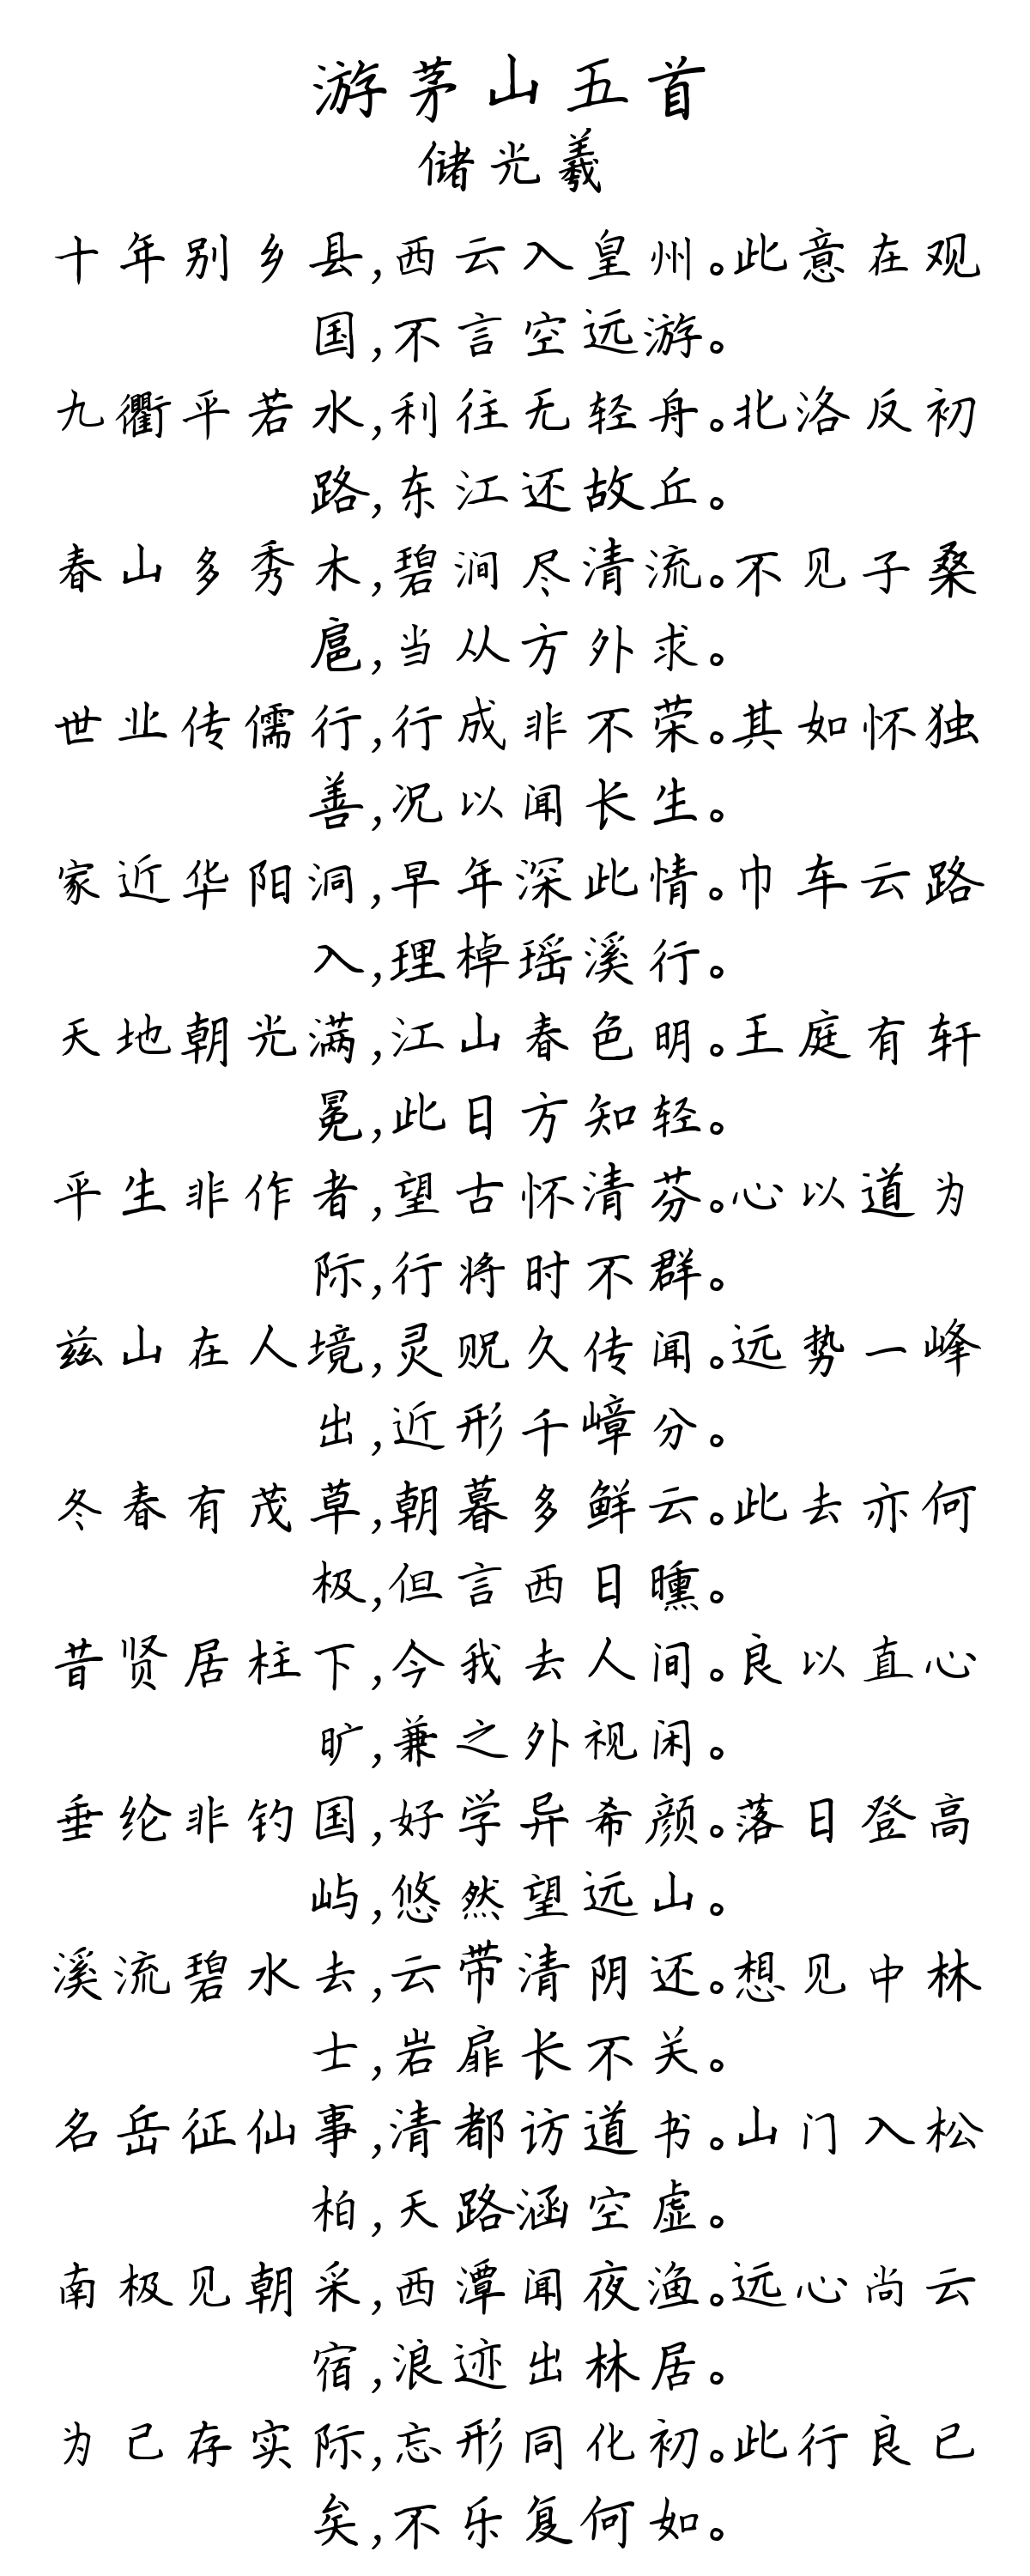 游茅山五首
储光羲
十年别乡县,西云入皇州。此意在观
国,不言空远游。
九衢平若水,利往无轻舟。北洛反初
路,东江还故丘。
春山多秀木,碧涧尽清流。不见子桑
扈,当从方外求。
世业传儒行,行成非不荣。其如怀独
善,况以闻长生。
家近华阳洞,早年深此情。巾车云路
入,理棹瑶溪行。
天地朝光满,江山春色明。王庭有轩
冕,此日方知轻。
平生非作者,望古怀清芬。心以道为
际,行将时不群。
兹山在人境,灵贶久传闻。远势一峰
出,近形千嶂分。
冬春有茂草,朝暮多鲜云。此去亦何
极,但言西日曛。
昔贤居柱下,今我去人间。良以直心
旷,兼之外视闲。
垂纶非钓国,好学异希颜。落日登高
屿,悠然望远山。
溪流碧水去,云带清阴还。想见中林
士,岩扉长不关。
名岳征仙事,清都访道书。山门入松
柏,天路涵空虚。
南极见朝采,西潭闻夜渔。远心尚云
宿,浪迹出林居。
为己存实际,忘形同化初。此行良已
矣,不乐复何如。